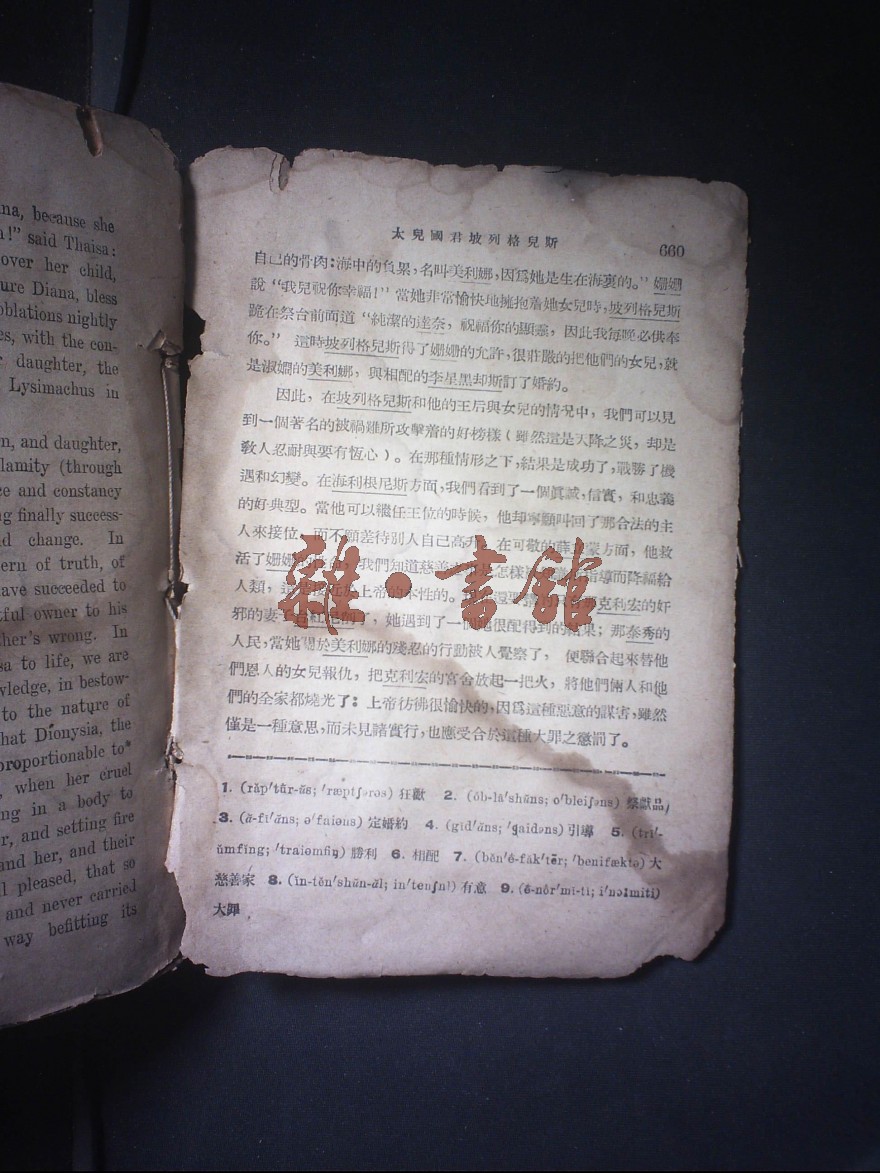 na, because she
!" said Thaisa:
over her child,
ure Diana, bless
oblations nightly
es, with the con-
daughter, the
Lysimachus in
n, and daughter,
lamity (through
ce and constancy
g finally success-
d change. In
ern of truth, of
ave succeeded to
tful owner to his
ther's wrong. In
sa to life, we are
wledge, in bestow-
to the nature of
hat Dionysia, the
proportionable to
, when her cruel
ng in a body to
r, and setting fire
and her, and their
l pleased, that so
and never carried
way befitting its
太兒國君坡列格兒斯 660
自己的骨肉：海中的負累，名叫美利娜，因爲她是生在海裏的。” 姗姗
說 “我兒祝你幸福！” 當她非常愉快地擁抱着她女兒時，坡列格兒斯
跪在祭台前面道 “純潔的達奈，祝福你的顯靈，因此我每晚必供奉
你。” 這時坡列格兒斯得了姗姗的允許，很莊嚴的把他們的女兒，就
是淑嫻的美利娜，與相配的李星黑却斯訂了婚約。
因此，在坡列格兒斯和他的王后與女兒的情况中，我們可以見
到一個著名的被禍難所攻擊着的好榜樣（雖然這是天降之災，却是
敎人忍耐與要有恆心）。在那種情形之下，結果是成功了，戰勝了機
遇和幻變。在海利根尼斯方面，我們看到了一個眞誠，信實，和忠義
的好典型。當他可以繼任王位的時候，他却寧願叫回了那合法的主
人來接位，而不願差待別人自己高升。在可敬的薛立蒙方面，他救
活了姗姗的 我們知道慈善 是怎樣 指導而降福給
人類， 上帝的本性的。 克利宏的奸
邪的妻子 她遇到了一個她很配得到的結果；那泰秀的
人民，當她關於美利娜的殘忍的行動被人覺察了， 便聯合起來替他
們恩人的女兒報仇，把克利宏的宮舍放起一把火，將他們倆人和他
們的全家都燒光了：上帝彷彿很愉快的，因爲這種惡意的謀害，雖然
僅是一種意思，而未見諸實行，也應受合於這種大罪之懲罰了。
1. (răp′tûr-ŭs; ′ræptʃərəs) 狂歡 2. (ŏb-lā′shŭns; o′bleiʃəns) 祭獻品
3. (ă-fī′ăns; ə′faiəns) 定婚約 4. (gīd′ăns; ′gaidəns) 引導 5. (trī′-
ŭmfĭng; ′traiəmfiŋ) 勝利 6. 相配 7. (bĕn′ĕ-făk′tẽr; ′benifæktə) 大
慈善家 8. (ĭn-tĕn′shŭn-ăl; in′tenʃnl) 有意 9. (ē-nôr′mĭ-tĭ; i′nɔ:miti)
大罪
雜·書館